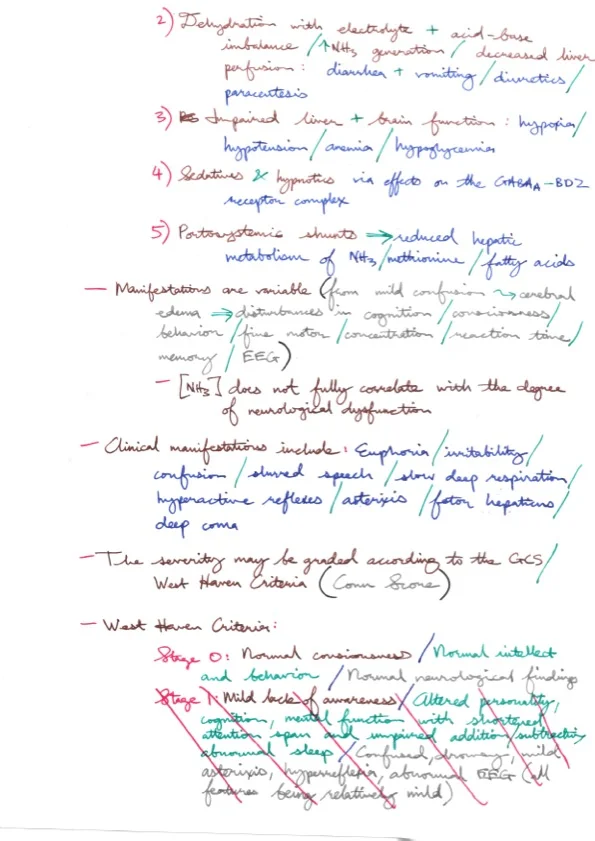 2) Dehydration with electrolyte + acid-base
imbalance / ↑NH₃ generation / decreased liver
perfusion : diarrhea + vomiting / diuretics /
paracentesis
3) Impaired liver + brain function : hypoxia /
hypotension / anemia / hypoglycemia
4) Sedatives & hypnotics via effects on the GABAA-BDZ
receptor complex
5) Portosystemic shunts → reduced hepatic
metabolism of NH₃ / methionine / fatty acids
— Manifestations are variable (from mild confusion ↝ cerebral
edema → disturbances in cognition / consciousness /
behavior / fine motor / concentration / reaction time /
memory / EEG)
— [NH₃] does not fully correlate with the degree
of neurological dysfunction
— Clinical manifestations include : Euphoria / irritability /
confusion / slurred speech / slow deep respiration /
hyperactive reflexes / asterixis / fetor hepaticus /
deep coma
— The severity may be graded according to the GCS /
West Haven Criteria (Conn Score)
— West Haven Criteria :
Stage 0 : Normal consciousness / Normal intellect
and behavior / Normal neurological findings
Stage 1 : Mild lack of awareness / Altered personality,
cognition, mental function with shortened
attention span and impaired addition / subtraction,
abnormal sleep / Confused, drowsy, mild
asterixis, hyperreflexia, abnormal EEG (all
features being relatively mild)